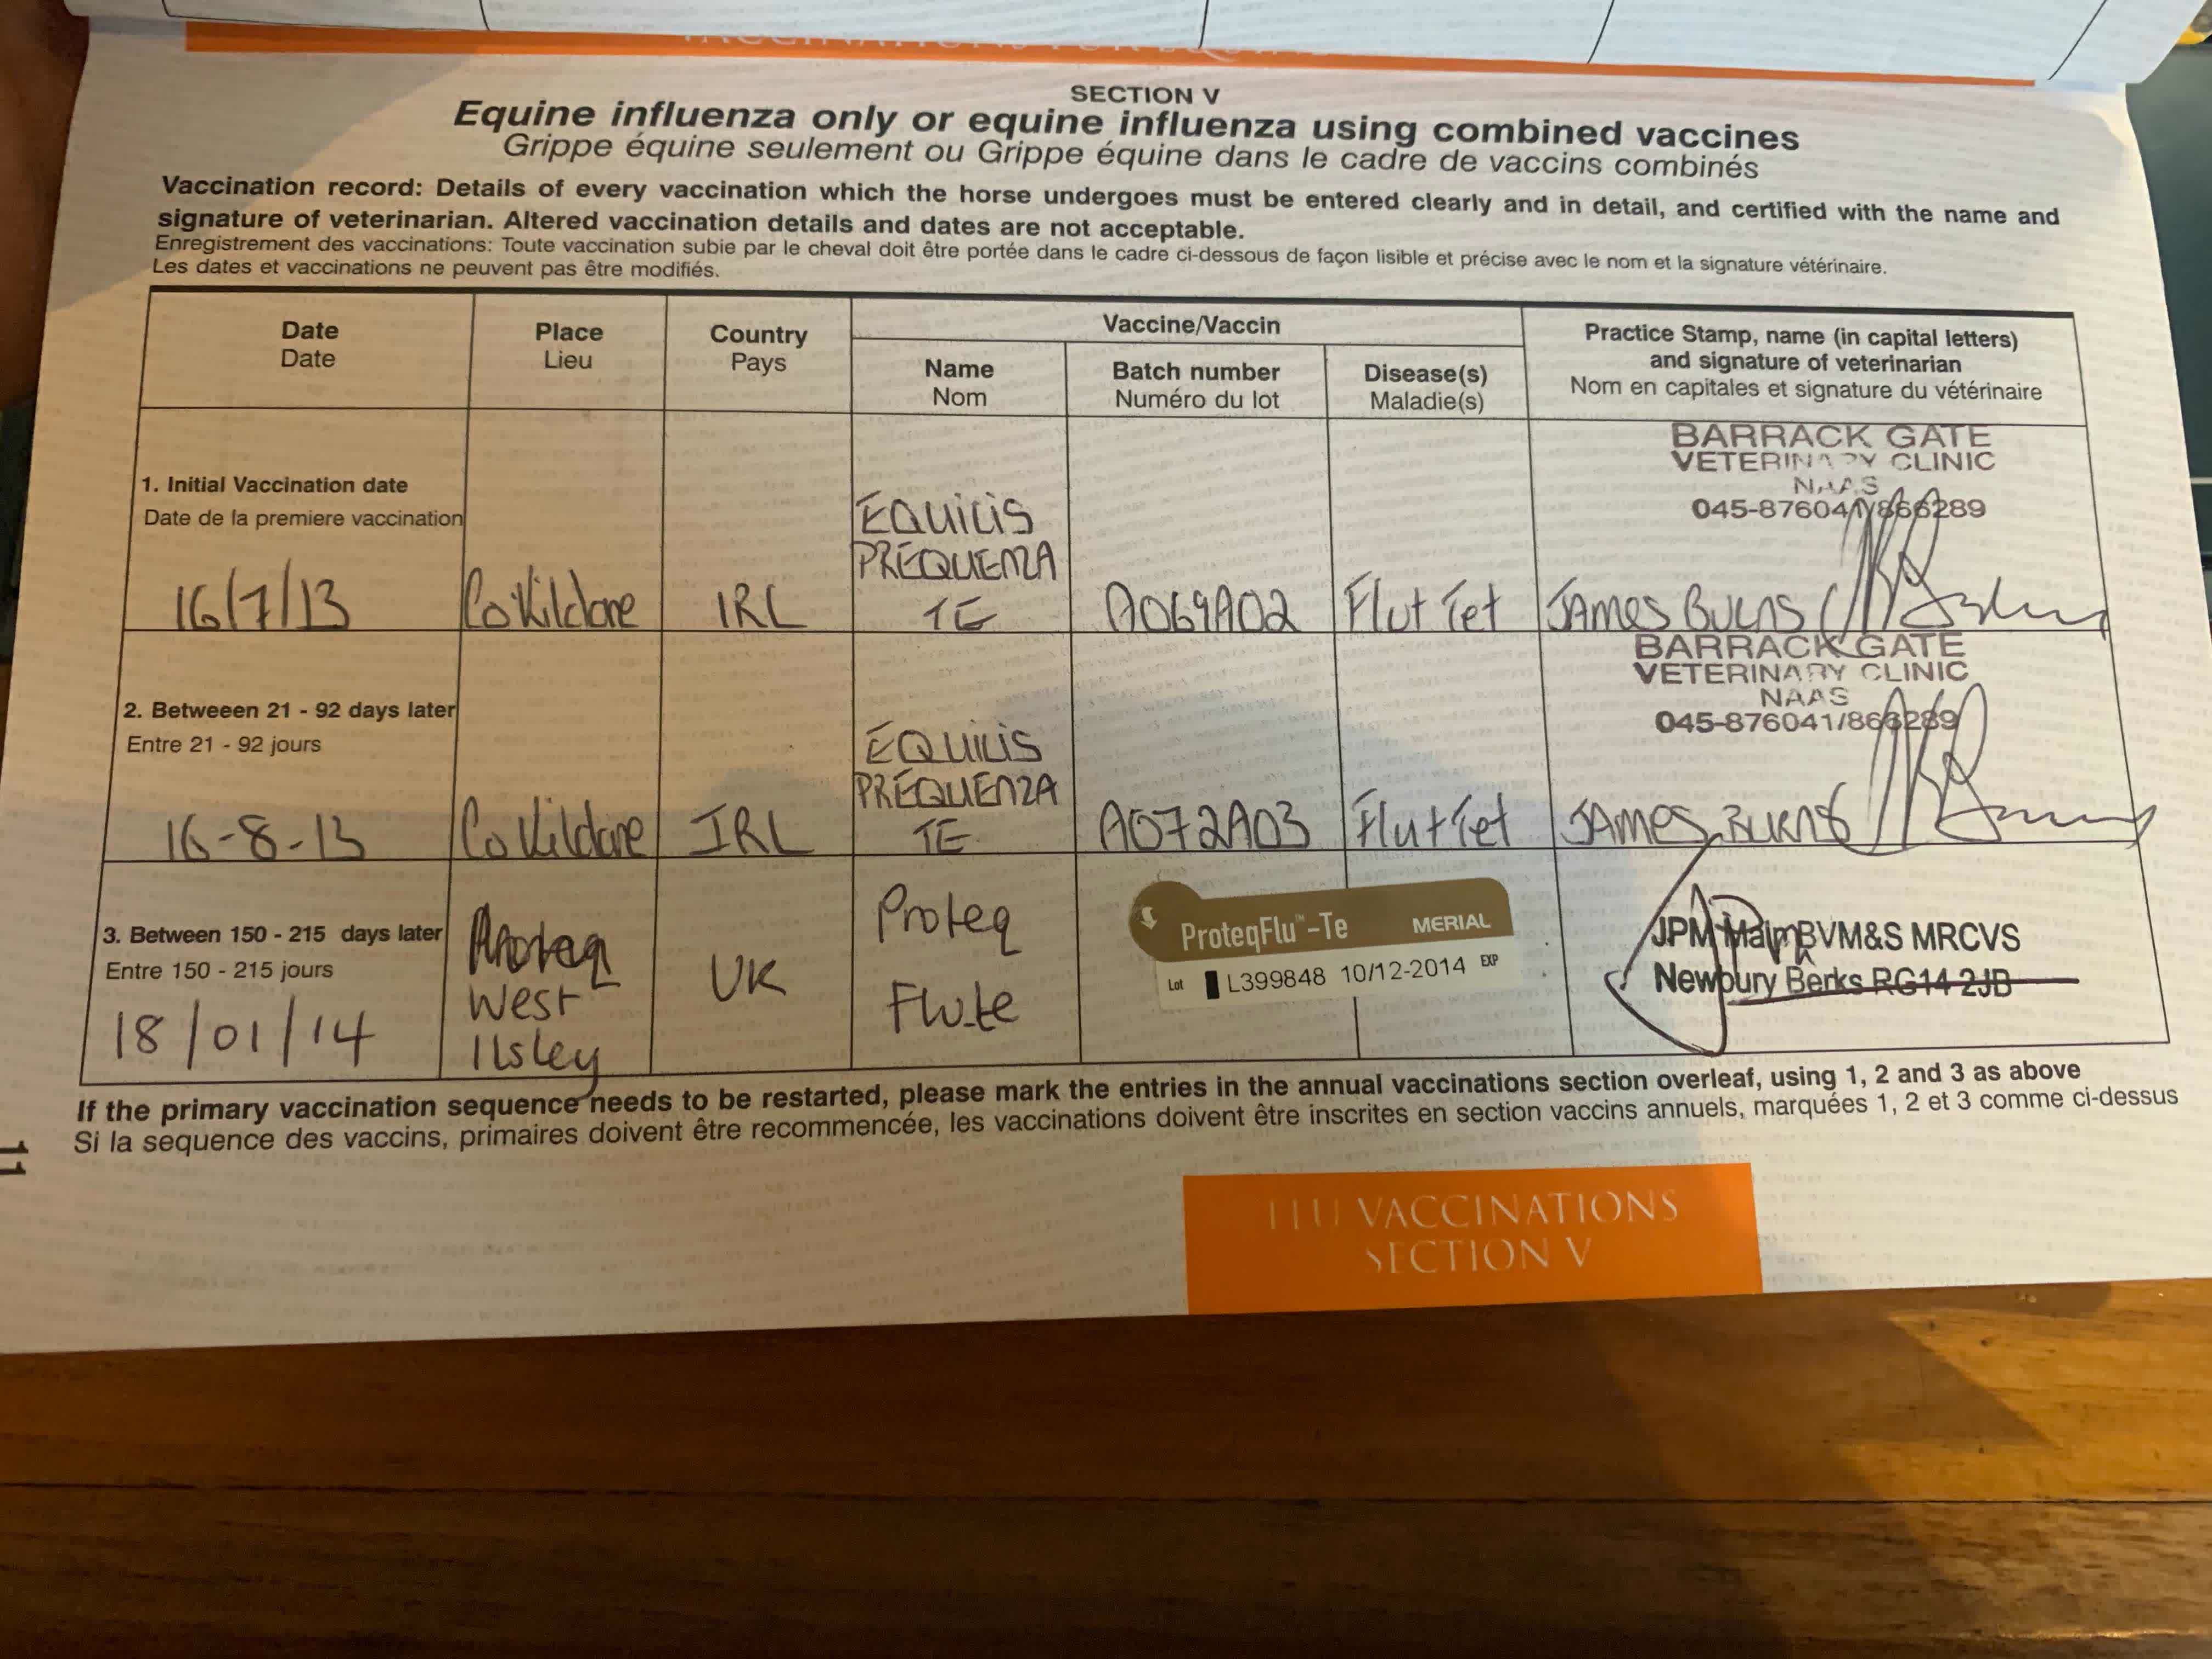 SECTION V
Equine influenza only or equine influenza using combined vaccines
Grippe équine seulement ou Grippe équine dans le cadre de vaccins combinés
Vaccination record: Details of every vaccination which the horse undergoes must be entered clearly and in detail, and certified with the name and
signature of veterinarian. Altered vaccination details and dates are not acceptable.
Enregistrement des vaccinations: Toute vaccination subie par le cheval doit être portée dans le cadre ci-dessous de façon lisible et précise avec le nom et la signature vétérinaire.
Les dates et vaccinations ne peuvent pas être modifiés.
Date
Date
Place
Lieu
Country
Pays
Vaccine/Vaccin
Name
Nom
Batch number
Numéro du lot
Disease(s)
Maladie(s)
Practice Stamp, name (in capital letters)
and signature of veterinarian
Nom en capitales et signature du vétérinaire
1. Initial Vaccination date
Date de la premiere vaccination
16/7/13
Co Kildare
IRL
EQUILIS
PREQUENZA
TE
A069A02
Flu+Tet
BARRACK GATE
VETERINARY CLINIC
NAAS
045-876041/866289
JAMES BURNS
2. Betweeen 21 - 92 days later
Entre 21 - 92 jours
16-8-13
Co Kildare
IRL
EQUILIS
PREQUENZA
TE
A072A03
Flu+Tet
BARRACK GATE
VETERINARY CLINIC
NAAS
045-876041/866289
JAMES BURNS
3. Between 150 - 215 days later
Entre 150 - 215 jours
18/01/14
West
Ilsley
UK
Proteq
Flu-te
ProteqFlu™-Te MERIAL
Lot L399848 10/12-2014 EXP
JPM Main BVM&S MRCVS
Newbury Berks RG14 2JB
If the primary vaccination sequence needs to be restarted, please mark the entries in the annual vaccinations section overleaf, using 1, 2 and 3 as above
Si la sequence des vaccins, primaires doivent être recommencée, les vaccinations doivent être inscrites en section vaccins annuels, marquées 1, 2 et 3 comme ci-dessus
11
FLU VACCINATIONS
SECTION V